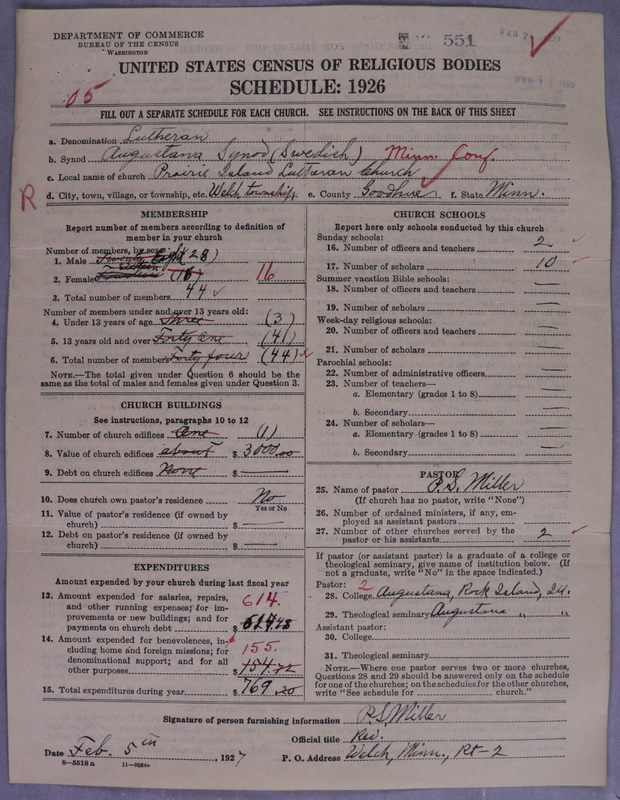 DEPARTMENT OF COMMERCE
BUREAU OF THE CENSUS
WASHINGTON
551
FEB 7
UNITED STATES CENSUS OF RELIGIOUS BODIES
SCHEDULE: 1926
05
FILL OUT A SEPARATE SCHEDULE FOR EACH CHURCH. SEE INSTRUCTIONS ON THE BACK OF THIS SHEET
a. Denomination Lutheran
b. Synod Augustana Synod (Swedish) Minn. Conf.
c. Local name of church Prairie Island Lutheran Church
R
d. City, town, village, or township, etc. Welch township e. County Goodhue f. State Minn.
MEMBERSHIP
Report number of members according to definition of
member in your church
Number of members, by sex:
1. Male Twenty Eight (28)
2. Female (16) 16
3. Total number of members 44
Number of members under and over 13 years old:
4. Under 13 years of age Three (3)
5. 13 years old and over Forty one (41)
6. Total number of members Forty four (44)
NOTE.—The total given under Question 6 should be the
same as the total of males and females given under Question 3.
CHURCH BUILDINGS
See instructions, paragraphs 10 to 12
7. Number of church edifices One (1)
8. Value of church edifices about $ 3000.00
9. Debt on church edifices None $ —
10. Does church own pastor's residence No
Yes or No
11. Value of pastor's residence (if owned by
church) $ —
12. Debt on pastor's residence (if owned by
church) $ —
EXPENDITURES
Amount expended by your church during last fiscal year
13. Amount expended for salaries, repairs,
and other running expenses; for im-
provements or new buildings; and for
payments on church debt $ 614.48
614.
14. Amount expended for benevolences, in-
cluding home and foreign missions; for
denominational support; and for all
other purposes $ 154.72
155.
15. Total expenditures during year $ 769.20
CHURCH SCHOOLS
Report here only schools conducted by this church
Sunday schools:
16. Number of officers and teachers 2
17. Number of scholars 10
Summer vacation Bible schools:
18. Number of officers and teachers —
19. Number of scholars —
Week-day religious schools:
20. Number of officers and teachers —
21. Number of scholars —
Parochial schools:
22. Number of administrative officers —
23. Number of teachers—
a. Elementary (grades 1 to 8) —
b. Secondary —
24. Number of scholars—
a. Elementary (grades 1 to 8) —
b. Secondary —
PASTOR
25. Name of pastor P.S. Miller
(If church has no pastor, write "None")
26. Number of ordained ministers, if any, em-
ployed as assistant pastors
27. Number of other churches served by the
pastor or his assistants 2
If pastor (or assistant pastor) is a graduate of a college or
theological seminary, give name of institution below. (If
not a graduate, write "No" in the space indicated.)
Pastor: 2
28. College Augustana, Rock Island, Ill.
29. Theological seminary Augustana " "
Assistant pastor:
30. College
31. Theological seminary
NOTE.—Where one pastor serves two or more churches,
Questions 28 and 29 should be answered only on the schedule
for one of the churches; on the schedules for the other churches,
write "See schedule for church."
Signature of person furnishing information P.S. Miller
Official title Rev.
Date Feb. 5th, 1927 P. O. Address Welch, Minn., Rt-2
8—5518a